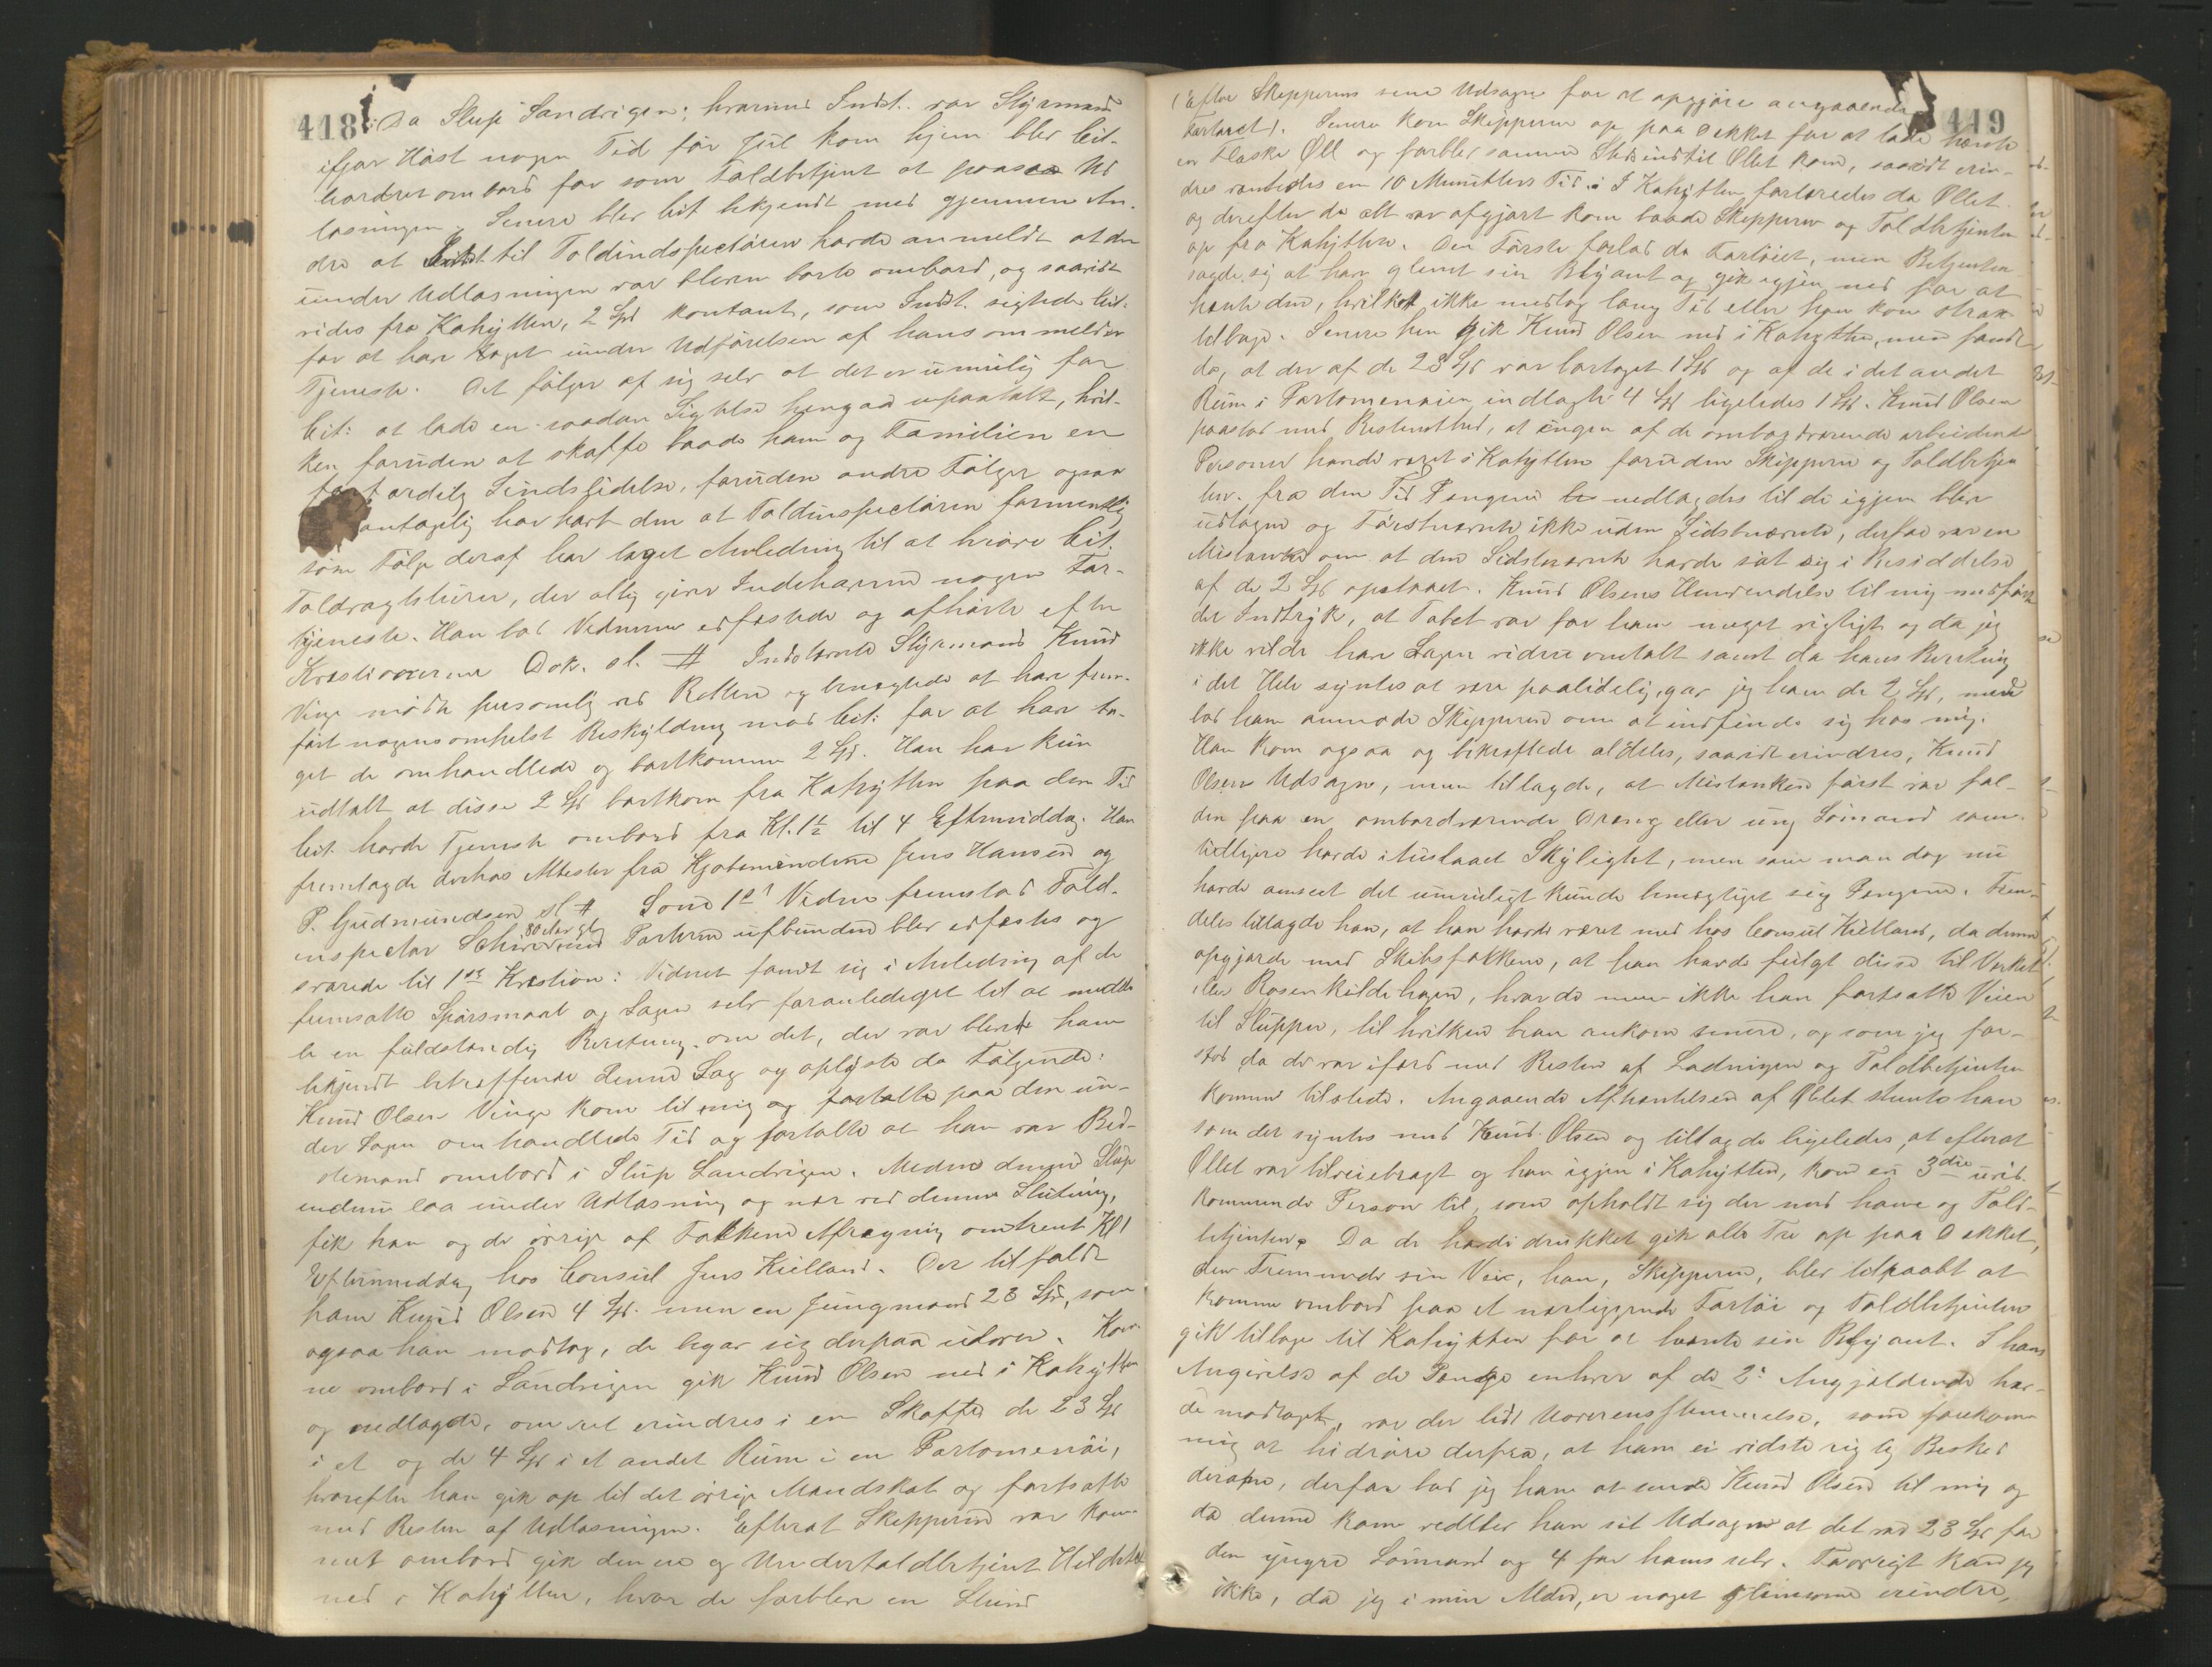 418
Da Slup Sandvigen, hvormed Indst. var Styrmand
ifjor Höst nogen Tid för Jul kom hjem blev Cit.
beordret ombord for som Toldbetjent at paasee Ud
losningen. Senere blev Cit bekjendt med gjennem An
dre at Indst til Toldindspectören havde anmeldt at der
under Udlosningen var bleven borte ombord, og saavidt
vides fra Kahytten, 2 Spd kontant, som Indst. sigtede Cit.
for at have taget under Udförelsen af hans ommeldte
Tjeneste. Det fölger af sig selv at det er umulig for
Cit: at lade en saadan Sigtelse hengaa upaatalt, hvil-
ken foruden at skaffe baade ham og Familien en
færdig Sindslidelse, foruden andre Fölger ogsaa
antagelig har havt den at Toldinspectören formentlig
som Fölge deraf har taget Anledning til at
Toldvagtsturer, der altid giver Indehaveren nogen For-
tjeneste. Han lod Vidnerne edfæstede og afhörte efter
Qvæstionerne Dok. sl. # Indstævnte Styrmand Knud
Vinge mödte personlig ved Retten og benægtede at have frem-
fört nogensomhelst Beskyldning mod Cit: for at have ta-
get de omhandlede og bortkomne 2 Spd. Han har kun
udtalt at disse 2 Spd bortkom fra Kahytten paa den Tid
Cit. havde Tjeneste ombord fra Kl. 1½ til 4 Eftermiddag. Han
fremlagde derhos Attester fra Kjöbmændene Jens Hansen og
P. Gudmundsen sl # Som 1st Vidne fremstod Told-
inspectör 80 Aar gl Parterne ubunden blev edfæstet og
svarede til 1ste Kvæstion: Vidnet fandt sig i Anledning af de
fremsatte Spörsmaal og Sagen selv foranlediget til at medde
le en fuldstændig Beretning om det, der var blevet ham
bekjendt betræffende denne Sag og oplyste da Fölgende:
Knud Olsen Vinge kom til mig og fortalte paa den un-
der Sagen omhandlede Tid og fortalte at han var Bed-
stemand ombord i Slup Sandvigen. Medens denne Slup
endnu laa under Udlosning og nær ved dennes Slutning,
fik han og de övrige af Folkene Afregning omtrent Kl 1
Eftermiddag hos Consul Jens Kielland. Der tilfaldt
ham Knud Olsen 4 Spd. men en Jungmand 23 Spd, som
ogsaa han modtog, de begav sig derpaa udover. Kom-
ne ombord i Sandvigen gik Knud Olsen ned i Kahytten
og nedlagde, om ret erindres i en Skuffe de 23 Spd
i et og de 4 Spd i et andet Rum i en Portomenöi,
hvorefter han gik op til det övrige Mandskab og fortsatte
med Resten af Udlosningen. Efterat Skipperen var kom-
met ombord gik denne og Undertoldbetjent
ned i Kahytten, hvor de forblev en Stund
449
(Efter Skipperens sene Udsagn for at opgjöre angaaende
Fartöiet). Senere kom Skipperen op paa Dekket for at lade hente
en Flaske Öll og forblev samme Sted indtil Öllet kom, saavidt erin-
dres ventedes en 10 Minutters Tid. I Kahytten fortæredes da Öllet
og derefter da alt var afgjort kom baade Skipperen og Toldbetjenten
op fra Kahytten. Den Förste forlod da Fartöiet, men Betjenten
sagde sig at have glemt sin Blyant og gik igjen ned for at
hente den, hvilket ikke medtog lang Tid eller han kom strax
tilbage. Senere hen gik Knud Olsen ned i Kahytten, men fandt
da, at der af de 23 Spd var bortaget 1 Spd og af de i det andet
Rum i Portomenöien indlagte 4 Spd ligeledes 1 Spd. Knud Olsen
paastod med Bestemthed, at ingen af de ombordværende arbeidende
Personer havde været i Kahytten foruden Skipperen og Toldbetjen
ten fra den Tid Pengene nedlagdes til de igjen blev
udtagne og Förstnævnte ikke uden Sidstnævnte, derfor var en
Mistanke om at den Sidstnævnte havde sat sig i Besiddelse
af de 2 Spd opstaaet. Knud Olsens Henvendelse til mig medförte
det Indtryk, at Tabet var for ham meget vigtigt og da jeg
ikke vilde have Sagen videre omtalt samt da hans Beretning
i det Hele syntes at være paalidelig, gav jeg ham de 2 Spd, men
lod ham anmode Skipperen om at indfinde sig hos mig.
Han kom ogsaa og bekræftede aldeles, saavidt erindres, Knud
Olsens Udsagn, men tillagde, at Mistanken först var fal-
den paa en ombordværende Dreng eller ung Sömand som
tidligere havde itustaaet Skyligtet, men som man dog nu
havde anseet det umuligt kunde bemægtiget sig Pengene. Frem-
deles tillagde han, at han havde været med hos Consul Kielland, da denne
opgjorde med Skibsfolkene, at han havde fulgt disse til Værket
eller Rosenkildehagen, hvor de men ikke han fortsatte Veien
til Sluppen, til hvilken han ankom senere, og som jeg for-
stod da de var ifærd med Resten af Ladningen og Toldbetjenten
kommen tilstede. Angaaende Afhentelsen af Öllet stemte han
som det syntes med Knud Olsen og tillagde ligeledes, at efterat
Öllet var tilveiebragt og han igjen i Kahytten, kom en 3die uved-
kommende Person til, som opholdt sig der med ham og Told-
betjenten. Da de havde drukket gik alle Tre op paa Dekket,
den Fremmede sin Vei, han, Skipperen, blev tilraabt at
komme ombord paa et nærliggende Fartöi og Toldbetjenten
gik tilbage til Kahytten for at hente sin Blyant. I hans
Angivelse af de Penge enhver af de 2de Angjældende hav-
de modtaget, var der lidt Uoverensstemmelse, som forekom
mig at hidröre derfra, at ham ei vidste rigtig Besked
derom, derfor bad jeg ham at sende Knud Olsen til mig og
da denne kom vedblev han sit Udsagn at det var 23 Spd for
den yngre Sömand og 4 for ham selv. Forövrigt kan jeg
ikke, da jeg i min Alder, er noget glemsom erindre,